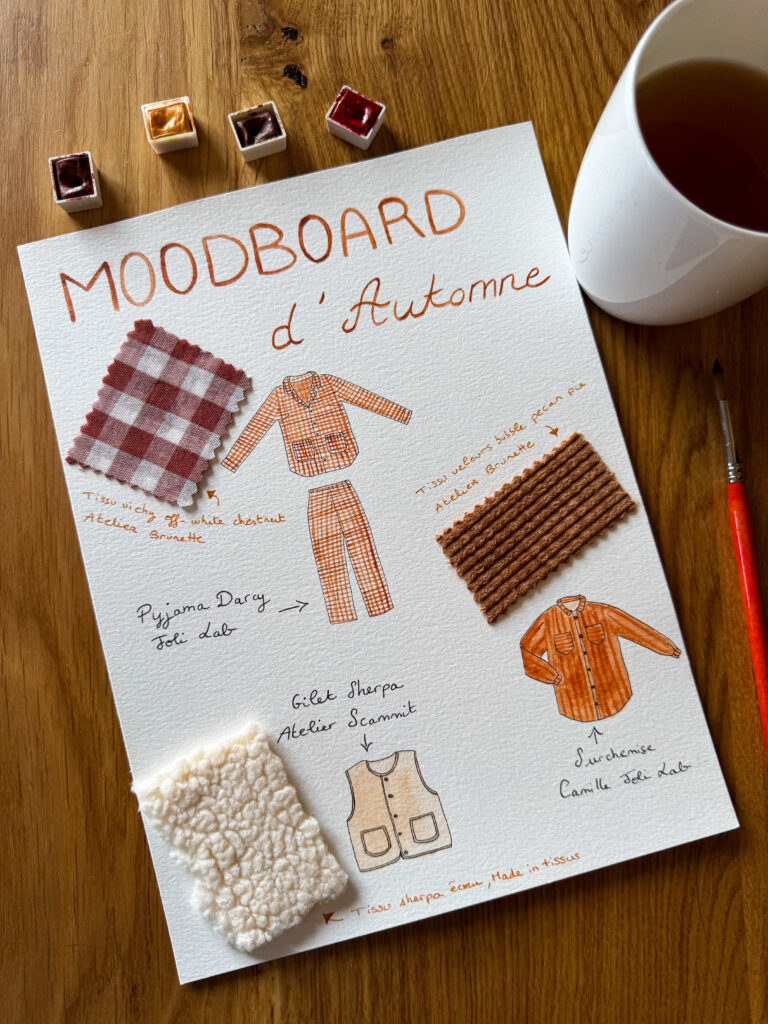 MOODBOARD
d'Automne
Tissu vichy off-white chestnut
Atelier Brunette
Tissu velours bubble pecan pie
Atelier Brunette
Pyjama Darcy
Joli Lab
Gilet Sherpa
Atelier Scammit
Surchemise
Camille Joli Lab
Tissu sherpa écru, Made in tissus